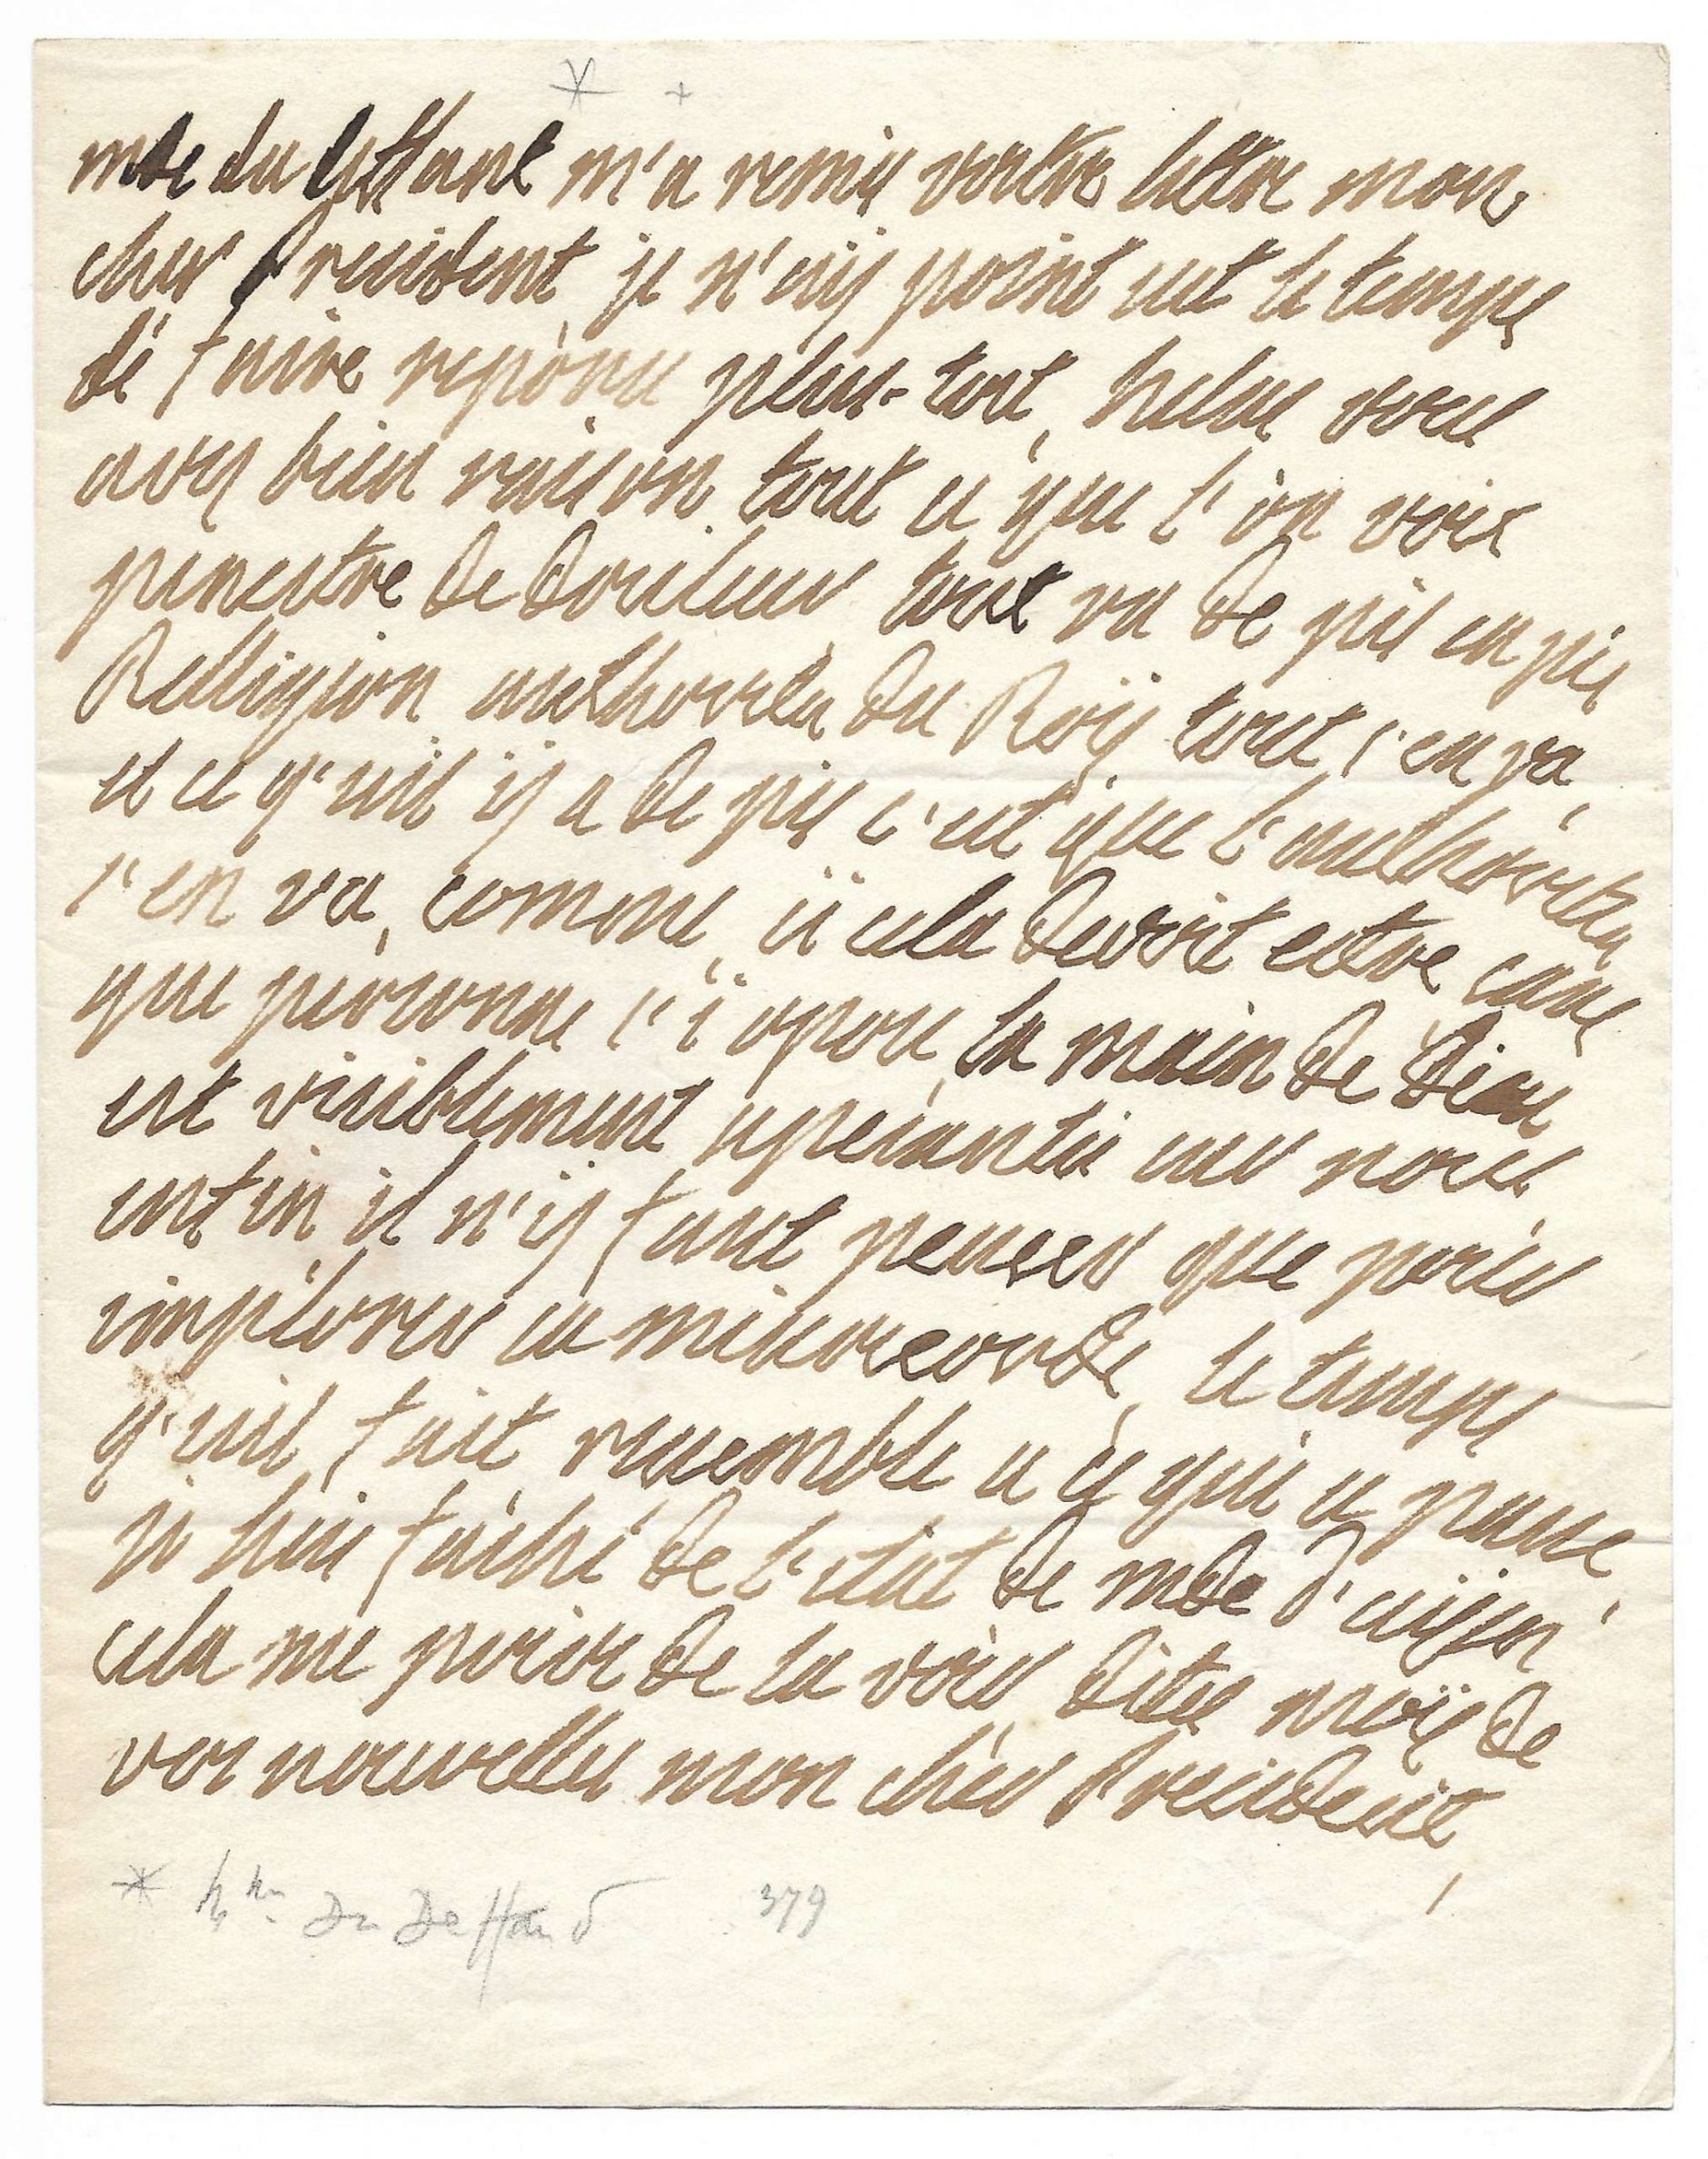 * +
mde du deffant m'a remis vostre lettre mon
cher President, je n'aÿ point eut le temps
de faire reponse plus-tost, helas vous
avez bien raison tout ce que l'on voit
penestre de douleur tout va de pis en pis
Relligion authorité du Roÿ tout s'en va,
et ce q'uil ÿ a de pis c'est que l'authorité
s'en va, comme si cela devoit estre sans
que personne s'ï opose, la main de Dieu
est visiblement apesantie sur nous,
enfin il n'ÿ faut penser que pour
implorer sa misericorde, le temps
q'uil fait resemble a ce qui se passe,
je suis faché de l'etat de mde d'
cela me prive de la voir dites moÿ de
vos nouvelles mon cher President,
* Mme Du Deffand 379